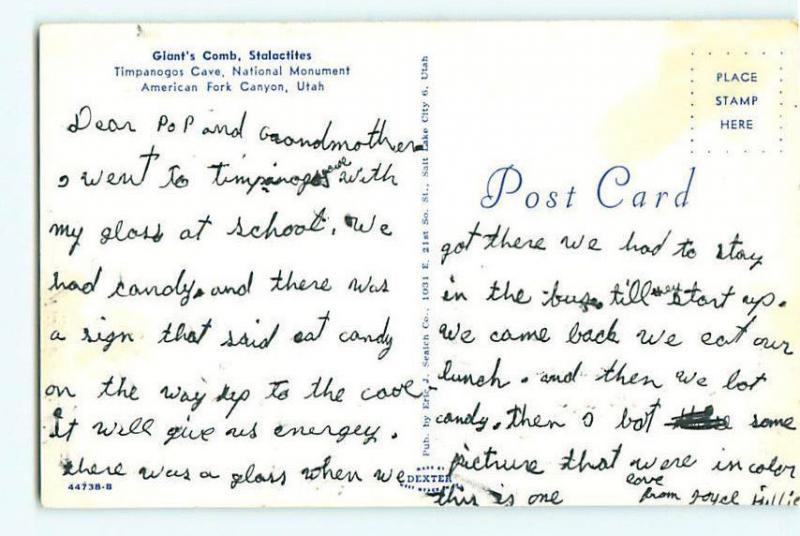 Giant's Comb, Stalactites
Timpanogos Cave, National Monument
American Fork Canyon, Utah
Dear PoP and Grandmother
I went to timpanogos cave with
my glass at school. We
had candy. and there was
a sign that said eat candy
on the way up to the cave
it will give us energey.
there was a glass when we
44738-B
Pub. by Eric J. Seaich Co., 1031 E. 21st So. St., Salt Lake City 6, Utah
DEXTER
PLACE
STAMP
HERE
Post Card
got there we had to stay
in the bus. till start up.
We came back we eat our
lunch. and then we bot
candy. then I bot some
picture that were in color
this is one
love
from Joyce